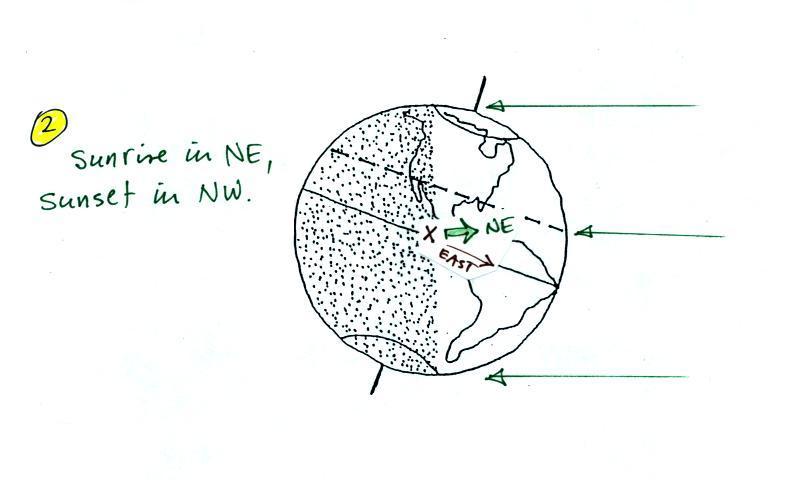 2
Sunrise in NE,
Sunset in NW.
X
NE
EAST